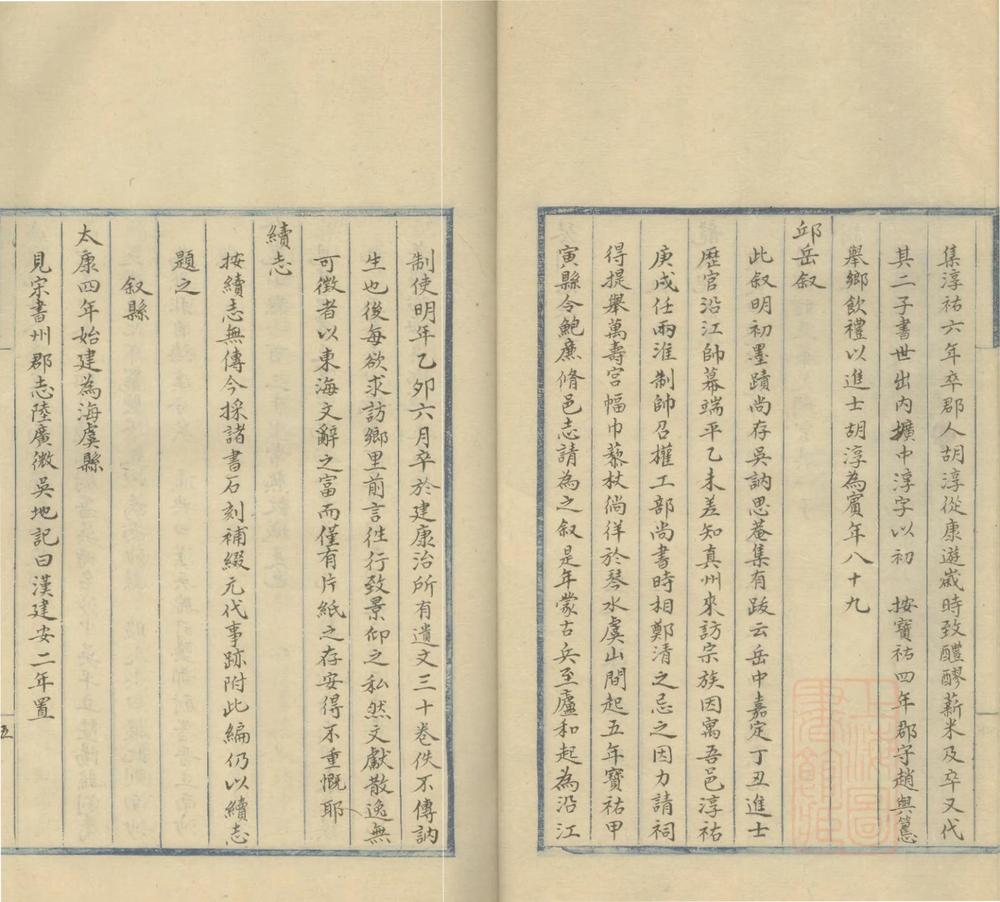 集淳祐六年卒郡人胡淳從康遊歲時致醴醪薪米及卒又代
其二子書世出內壙中淳字以初　按寶祐四年郡守趙與𥲅
舉鄉飲禮以進士胡淳為賓年八十九
邱岳叙
此叙明初墨蹟尚存吳訥思菴集有跋云岳中嘉定丁丑進士
歷官沿江帥幕端平乙未差知真州來訪宗族因寓吾邑淳祐
庚戌任兩淮制帥召權工部尚書時相鄭清之忌之因力請祠
得提舉萬壽宮幅巾藜杖倘徉於琴水虞山間起五年寶祐甲
寅縣令鮑廉脩邑志請為之叙是年蒙古兵至廬和起為沿江
制使明年乙夘六月卒於建康治所有遺文三十卷佚不傳訥
生也後每欲求訪鄉里前言徃行致景仰之私然文獻散逸無
可徵者以東海文辭之富而僅有片紙之存安得不重慨耶
續志
按續志無傳今採諸書石刻補綴元代事跡附此編仍以續志
題之
叙縣
太康四年始建為海虞縣
見宋書州郡志陸廣微吳地記曰漢建安二年置
五